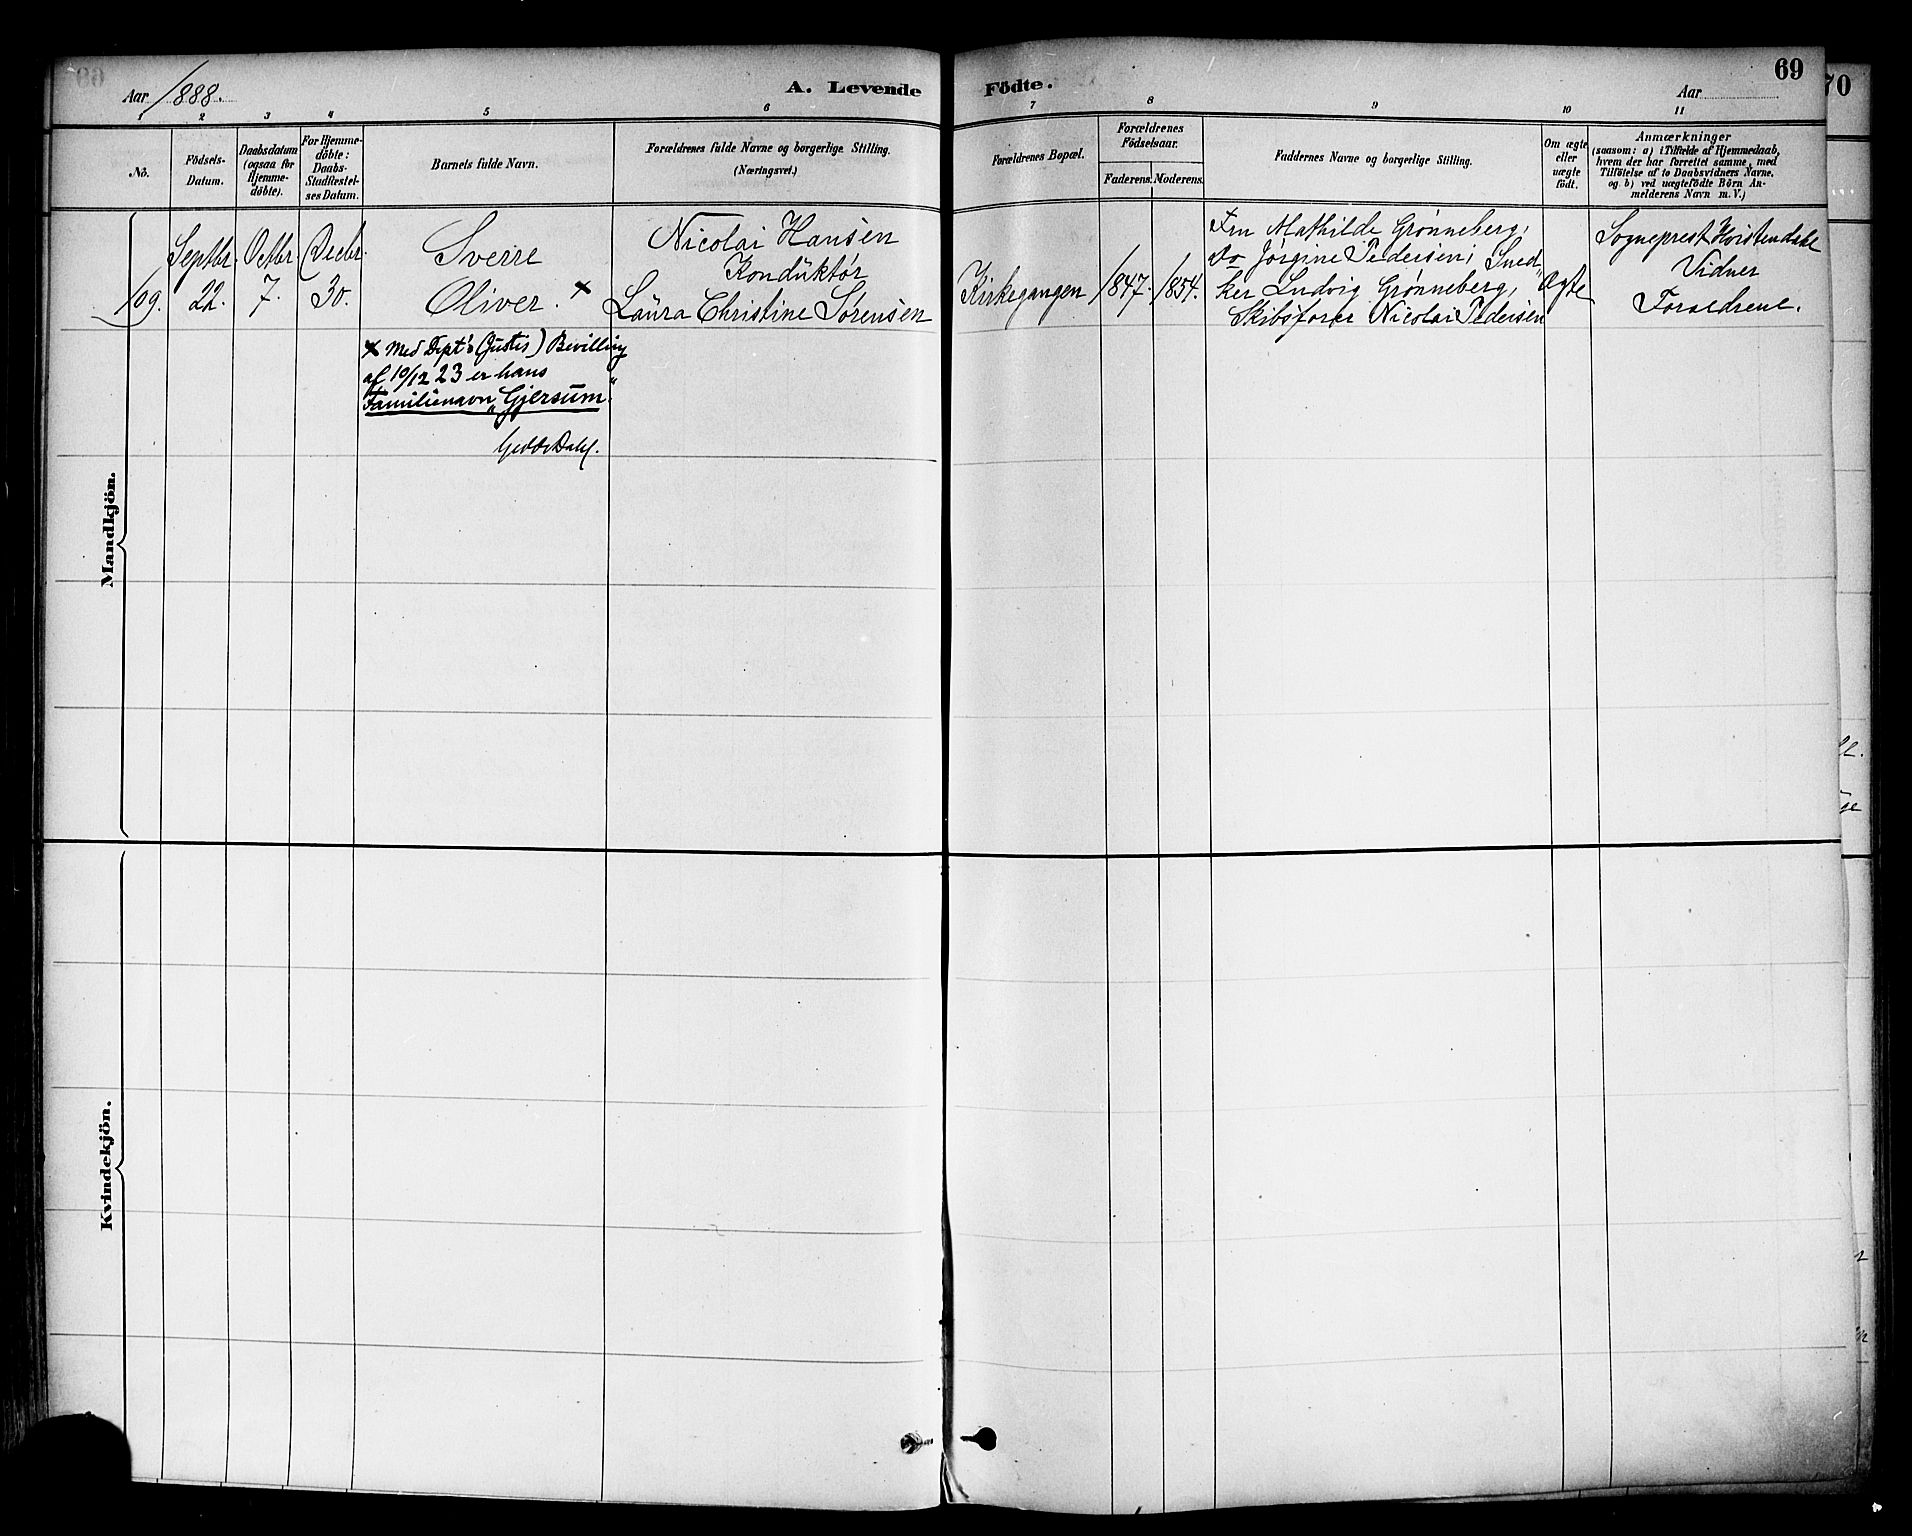 69
70
Aar 1888.
A. Levende Födte.
Aar
1 2 3 4 5 6 7 8 9 10 11
No.
Födsels-
Datum.
Daabsdatum
(ogsaa for
Hjemme-
döbte).
For Hjemme-
döbte:
Daabs-
Stadfestel-
ses Datum.
Barnets fulde Navn.
Forældrenes fulde Navne og borgerlige Stilling.
(Næringsvei.)
Forældrenes Bopæl.
Forældrenes
Födselsaar.
Faderens. Moderens.
Faddernes Navne og borgerlige Stilling.
Om ægte
eller
uægte
født.
Anmærkninger
(saasom: a) i Tilfælde af Hjemmedaab,
hvem der har forrettet samme, med
Tilföielse af to Daabsvidners Navne,
og b) ved uægtefödte Börn An-
melderens Navn m. V.)
Mandkjön.
109.
Septbr.
22.
Octbr.
7.
Decbr.
30.
Sverre
Oliver. x
Nicolai Hansen
Konduktør
Laura Christine Sørensen
Kirkegangen
1847.
1854.
Fru Mathilde Grønneberg,
do Jørgine Pedersen, Sned-
ker Ludvig Grønneberg,
Skibsfører Nicolai Pedersen
Ægte
Sogneprest Hvistendahl
Vidner
Forældrene.
x Med Dept's (Justis) Bevilling
af 10/12 23 er hans
Familienavn „Gjersum."
Kvindekjön.